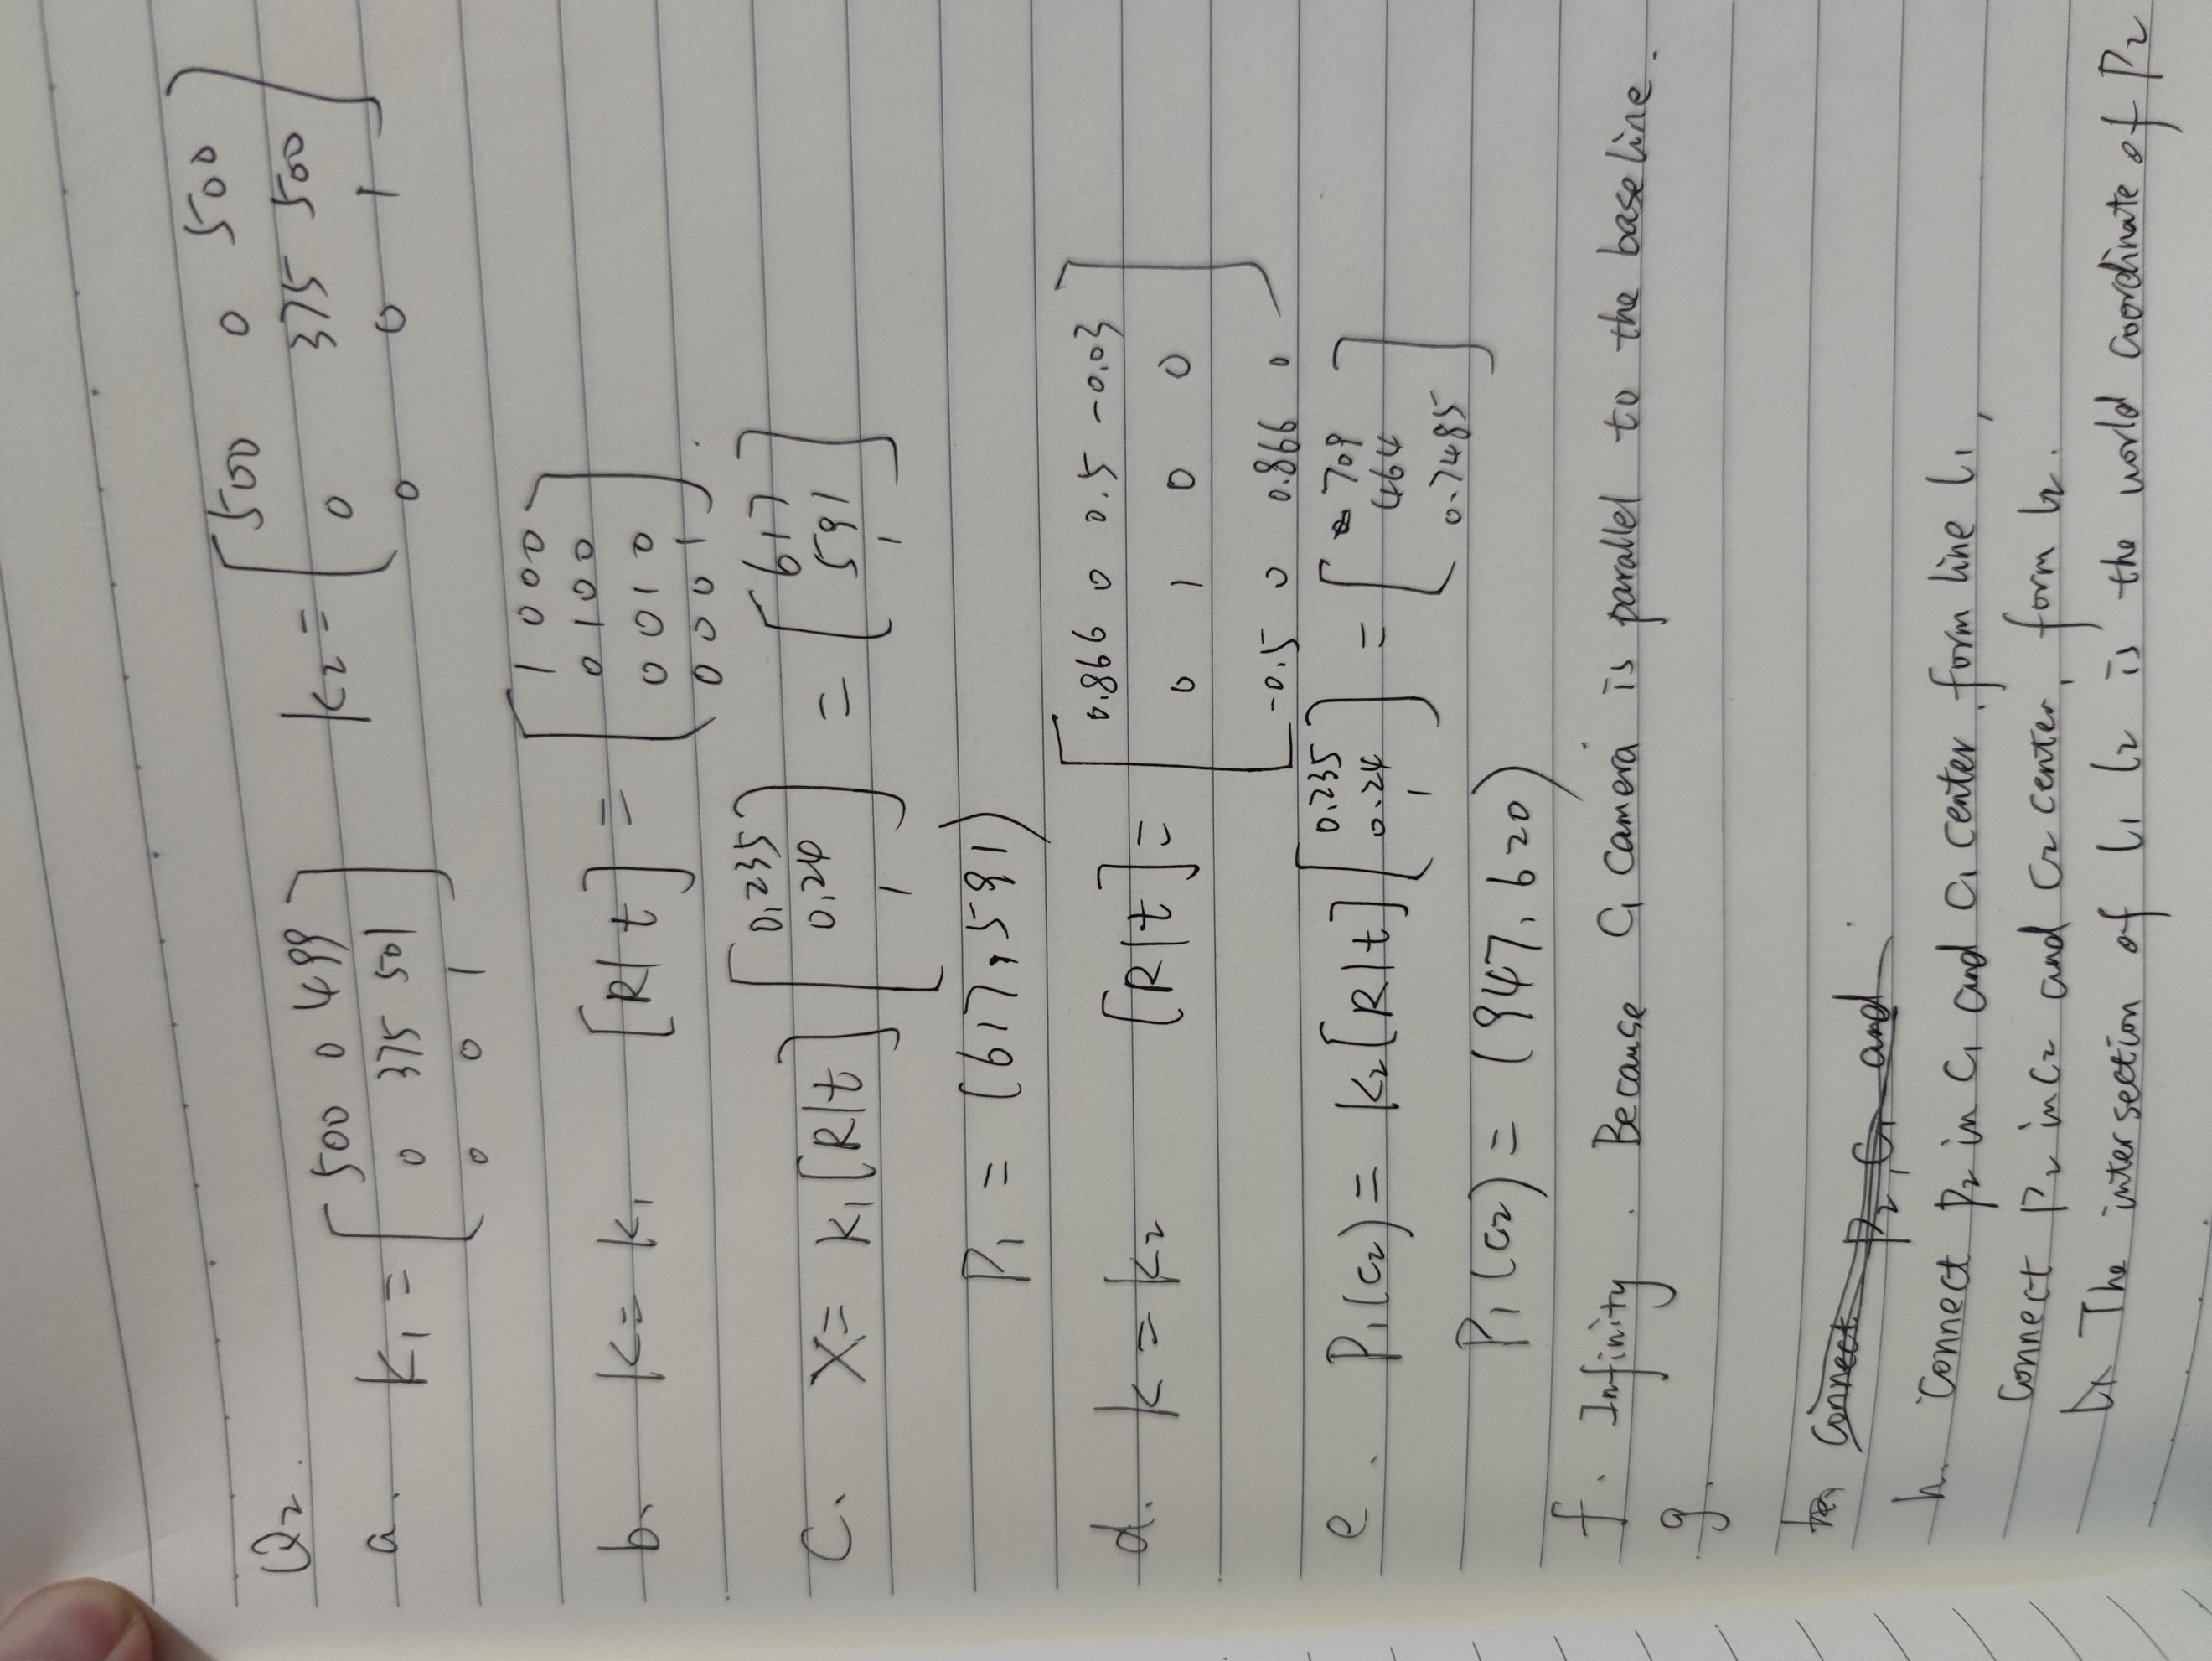 Q2.
a. K1 = [ 500 0 499
0 375 501
0 0 1 ]
K2 = [ 500 0 500
0 375 500
0 0 1 ]
b. K = K1 [R|t] = [ 1 0 0 0
0 1 0 0
0 0 1 0
0 0 0 1 ]
C. X = K1 [R|t] [ 0.235
0.24
1 ] = [ 617
591
1 ]
P1 = (617, 591)
d. K = K2 [R|t] = [ 0.866 0 0.5 -0.03
0 1 0 0
-0.5 0 0.866 0 ]
e. P1(C2) = K2[R|t] [ 0.235
0.24
1 ] = [ 709
464
0.7485 ]
P1(C2) = (947, 620)
f. Infinity. Because C1 Camera is parallel to the baseline.
g.
Connect P2, C1 and
h. Connect P2 in C1 and C1 center, form line l1,
Connect P2 in C2 and C2 center, form l2.
The intersection of l1 l2 is the world coordinate of P2